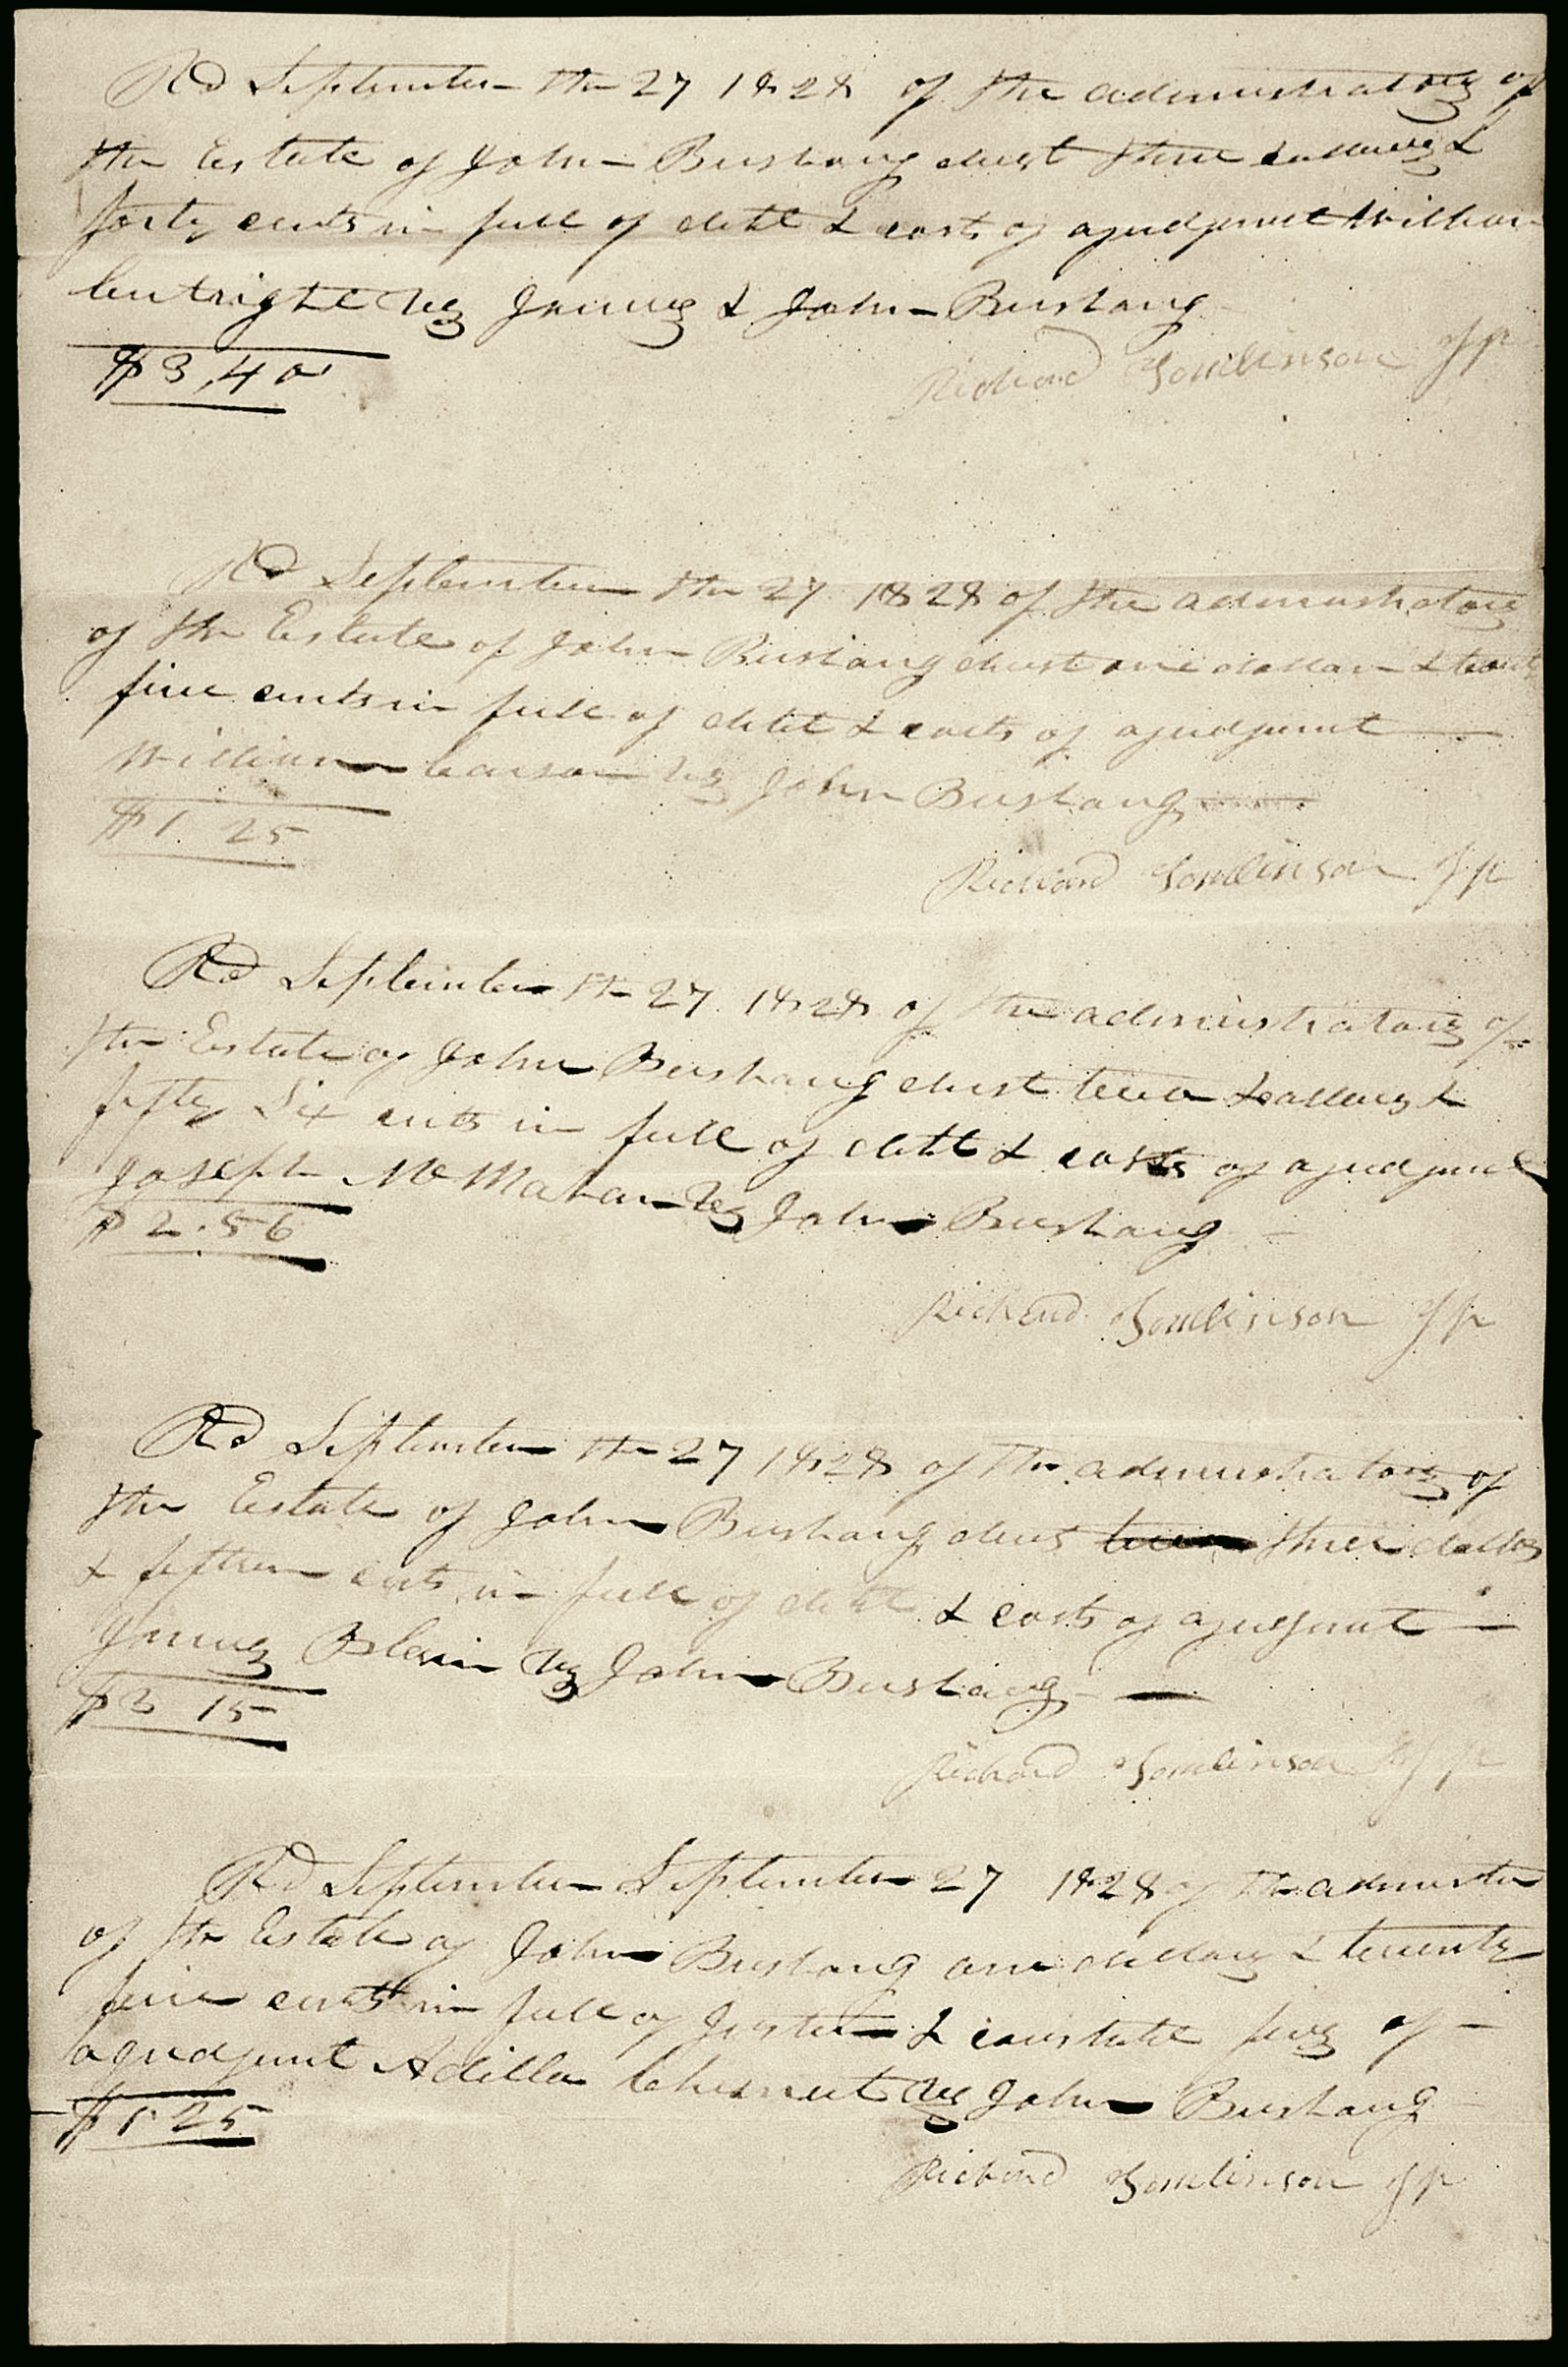 Rd September the 27 1828 of the administratorg of
the Estate of John Bushong desst three dollars &
forty cents in full of debt & costs of ajudgment William
Cutright vs James & John Bushong
$3,40
Richard Tomlinson Jp
Rd September the 27 1828 of the administrators
of the Estate of John Bushong desst one dollar &
five cents in full of debt & costs of ajudgment
William Carson vs John Bushong
$1.25
Richard Tomlinson Jp
Rd September the 27 1828 of the administrators of
the Estate of John Bushong desst two dollars &
fifty Six cents in full of debt & costs of ajudgment
Joseph McMahan vs John Bushong
$2.56
Richard Tomlinson Jp
Rd September the 27 1828 of the administrators of
the Estate of John Bushong dess two three dollars
& fifteen cents in full of debt & costs of ajudgment
James Blair vs John Bushong
$3 15
Richard Tomlinson Jp
Rd September September 27 1828 of the
of the Estate of John Bushong one dollars & twenty
five cents in full of & fees of
ajudgment Adilla Chesnut vs John Bushong
$1.25
Richard Tomlinson Jp